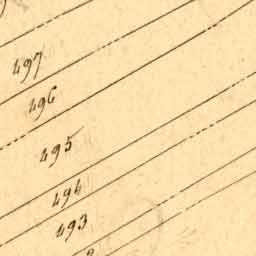 497
496
495
494
493